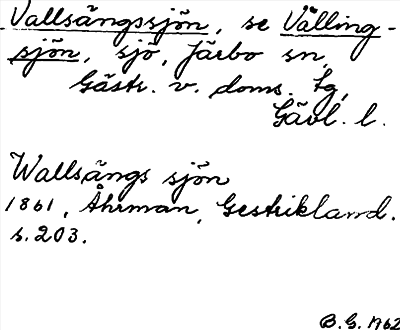 Vallsängssjön, se Välling-
sjön, sjö, Järbo sn,
Gästr. v. doms. tg,
Gävl. l.
Wallsängs sjön
1861, Åhrman, Gestrikland.
s. 203.
B.G. 1962